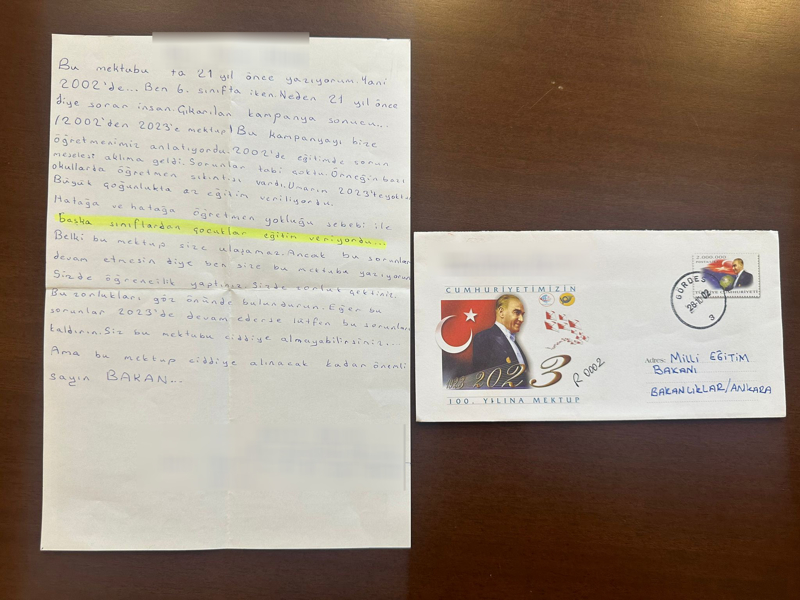 Bu mektubu ta 21 yıl önce yazıyorum. Yani
2002'de... Ben 6. sınıfta iken. Neden 21 yıl önce
diye sorar insan. Çıkarılan kampanya sonucu...
(2002'den 2023'e mektup) Bu kampanyayı bize
öğretmenimiz anlatıyordu. 2002'de eğitimde sorun
meselesi aklıma geldi. Sorunlar tabi çoktu. Örneğin bazı
okullarda öğretmen sıkıntısı vardı. Umarım 2023'te yoktur.
Büyük çoğunlukta az eğitim veriliyordu.
Hatağa ve hatağa öğretmen yokluğu sebebi ile
başka sınıflardan çocuklar eğitim veriyordu...
Belki bu mektup size ulaşamaz. Ancak bu sorunlar
devam etmesin diye ben size bu mektubu yazıyorum
Sizde öğrencilik yaptınız. Sizde zorluk çektiniz.
Bu zorlukları göz önünde bulundurun. Eğer bu
sorunlar 2023'de devam ederse lütfen bu sorunları
kaldırın. Siz bu mektubu ciddiye almayabilirsiniz...
Ama bu mektup ciddiye alınacak kadar önemli
sayın BAKAN...
CUMHURİYETİMİZİN
1923 2023
100. YILINA MEKTUP
R 0002
2.000.000
TÜRKİYE CUMHURİYETİ
GÖRDES
28.10.02
3
Adres: Milli Eğitim
BAKANI
BAKANLIKLAR/ANKARA